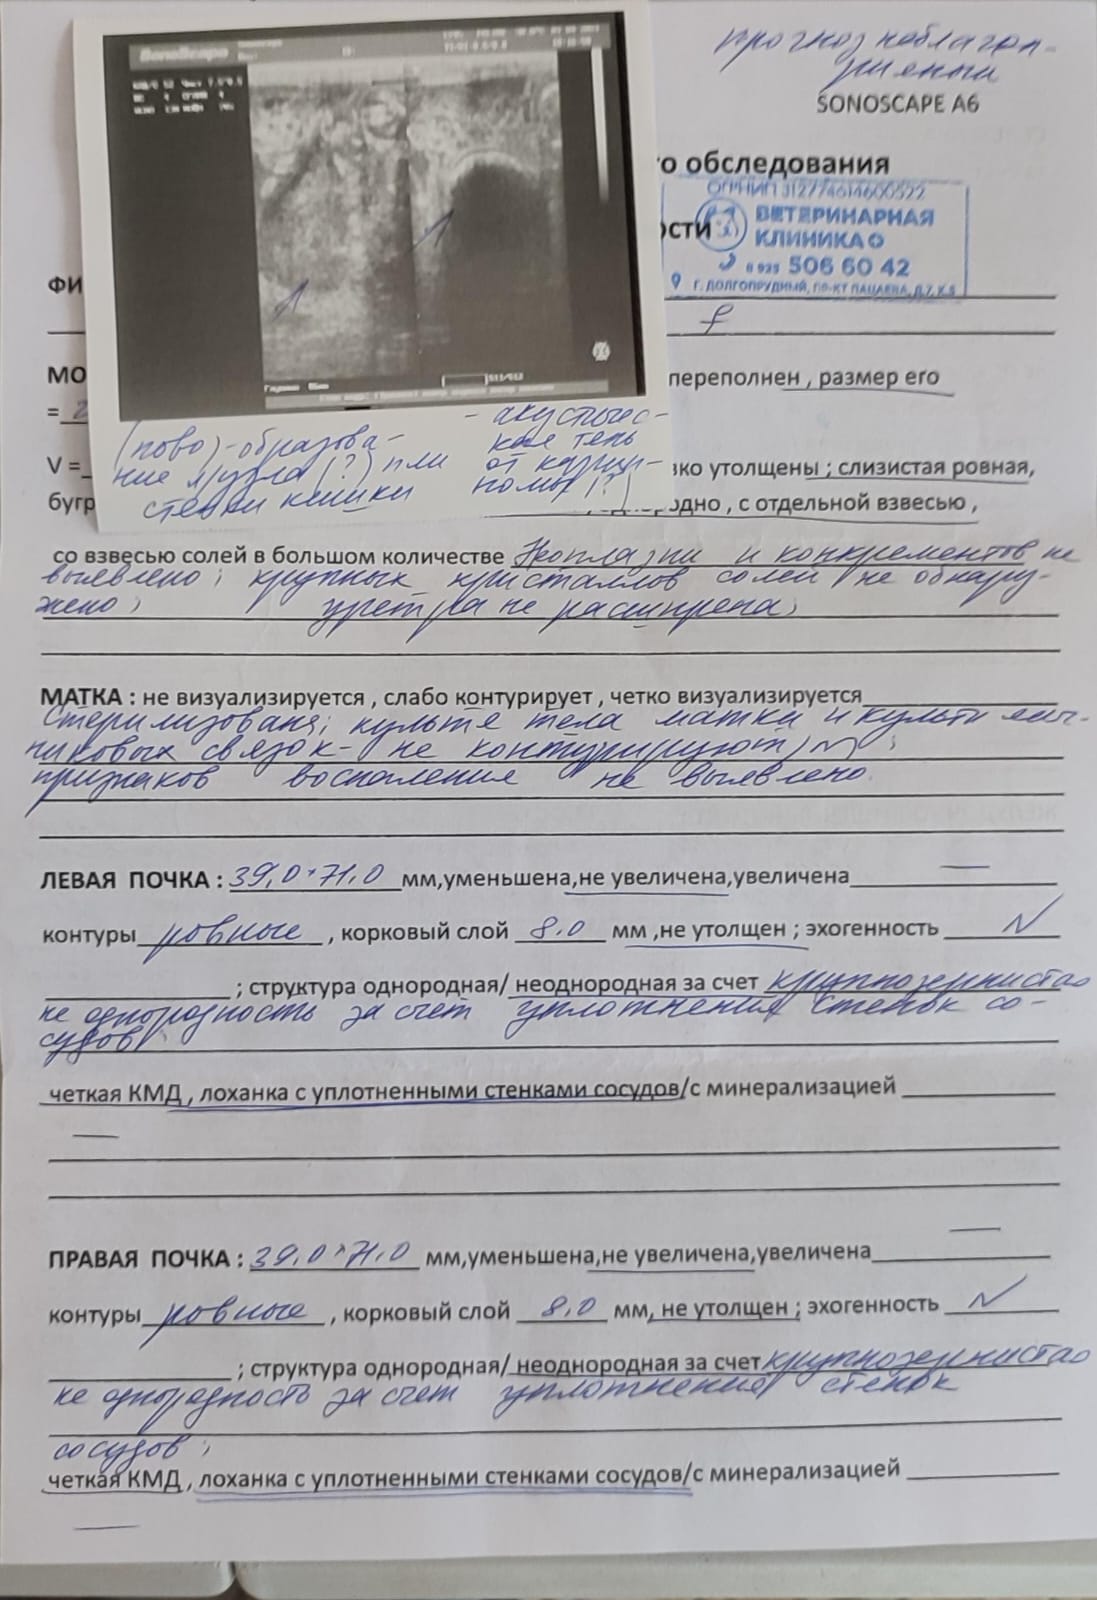 прогноз неблагоп-
риятный
SONOSCAPE A6
го обследования
ости
ОГРНИП 312774614600522
ВЕТЕРИНАРНАЯ
КЛИНИКА
8 925 506 60 42
Г. ДОЛГОПРУДНЫЙ, ПР-КТ ПАЦАЕВА, Д.7, К.5
SonoScape
ФИ
f
МО
переполнен , размер его
=
(ново)-образова-
ние л/узла (?) или
стенки кишки
- акустичес-
кая тень
от карци-
номы (?)
V =
ко утолщены ; слизистая ровная,
бугр
одно , с отдельной взвесью ,
со взвесью солей в большом количестве Неоплазии и конкрементов не
выявлено; крупных кристаллов солей не обнару-
жено; уретра не расширена;
МАТКА : не визуализируется , слабо контурирует , четко визуализируется
Стерилизована; культя тела матки и культи яич-
никовых связок - не контурируют, N ;
признаков воспаления не выявлено.
ЛЕВАЯ ПОЧКА : 39,0*71,0 мм,уменьшена,не увеличена,увеличена —
контуры ровные , корковый слой 8.0 мм ,не утолщен ; эхогенность N
; структура однородная/ неоднородная за счет крупнозернистая
не однородность за счет уплотнения стенок со-
судов
четкая КМД , лоханка с уплотненными стенками сосудов/с минерализацией
—
ПРАВАЯ ПОЧКА : 39,0*71,0 мм,уменьшена,не увеличена,увеличена —
контуры ровные , корковый слой 8,0 мм, не утолщен ; эхогенность N
; структура однородная/ неоднородная за счет крупнозернистая
не однородность за счет уплотнения стенок
сосудов ;
четкая КМД , лоханка с уплотненными стенками сосудов/с минерализацией
—